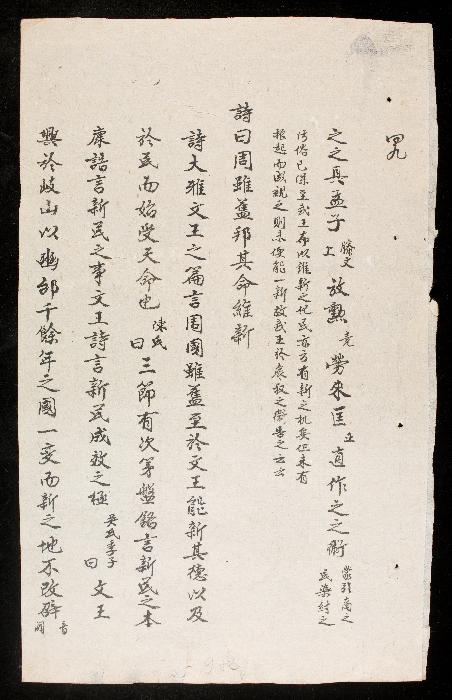 四九
之之具孟子滕文上放勲堯勞来匡正直作之之術蒙引商之民染紂之
污俗已深至武王布以維新之化民亦方有新之机矣但未有
振起而感視之則未便能一新故武王於康叔之徃告之云云
詩曰周雖舊邦其命維新
詩大雅文王之篇言周國雖舊至於文王能新其德以及
於民而始受天命也陳氏曰三節有次第盤銘言新民之本
康誥言新民之事文王詩言新民成效之極吳氏季子曰文王
興於岐山以豳邰千餘年之國一变而新之地不改辟音闢